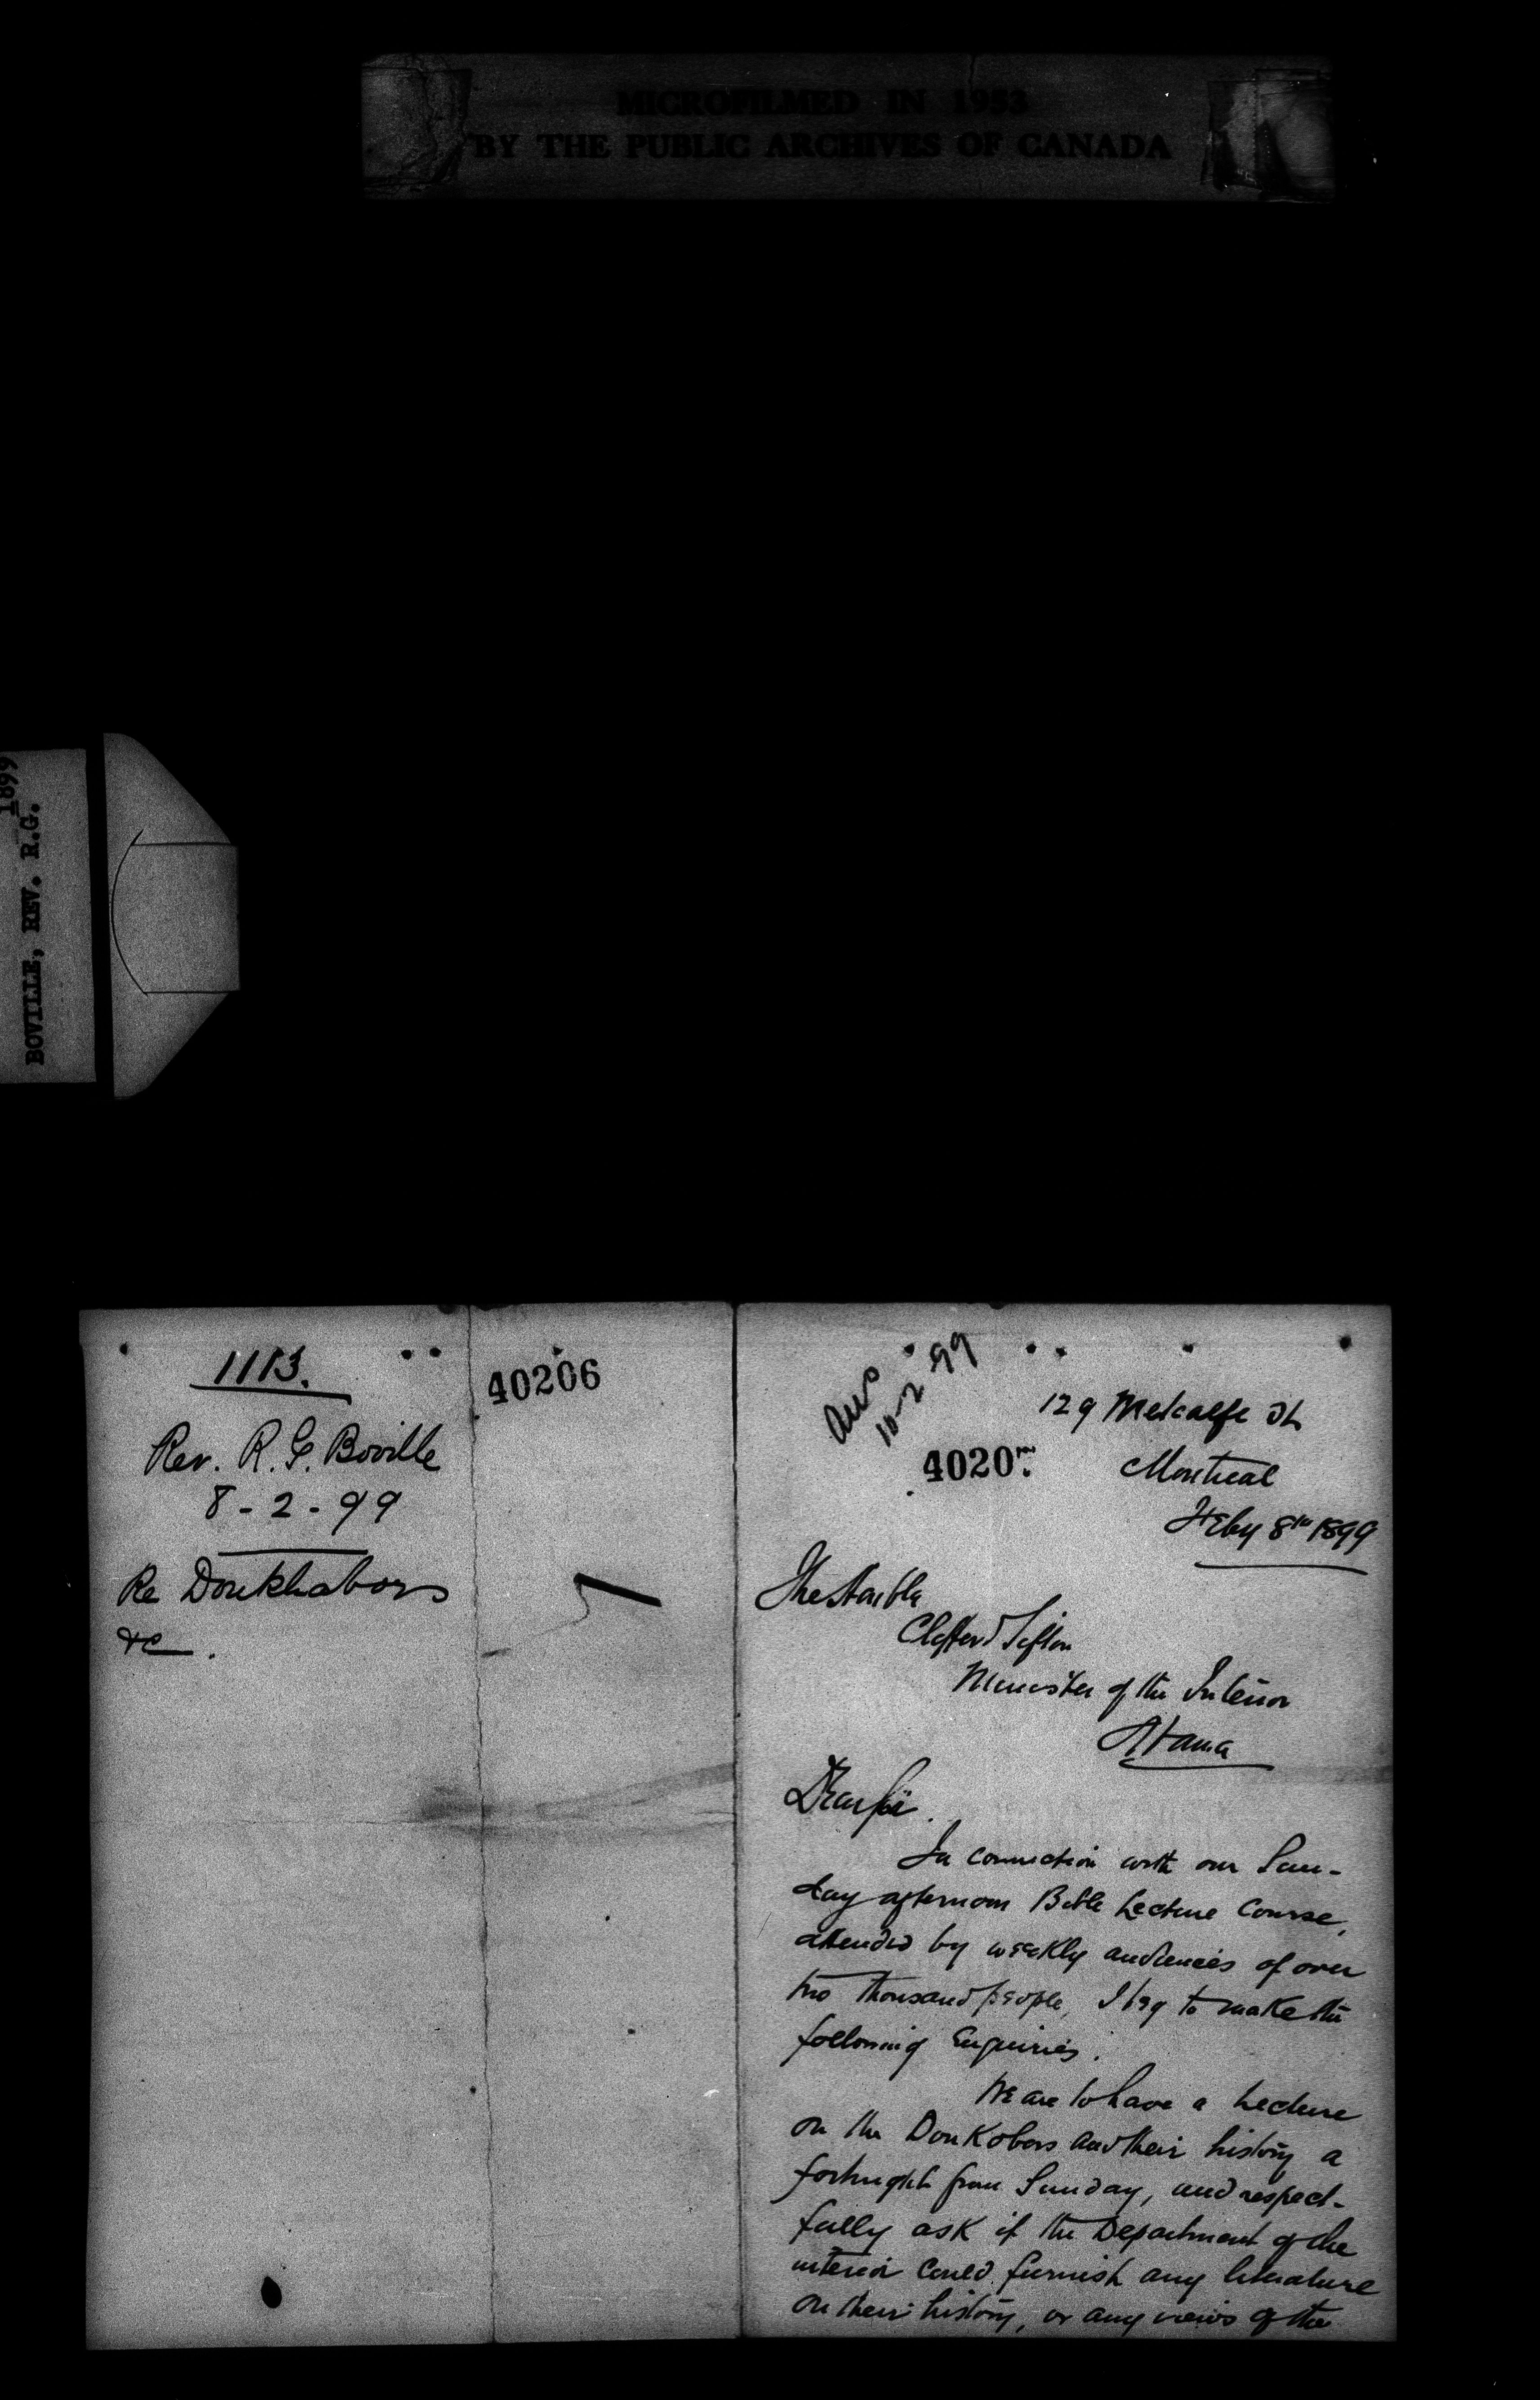 MICROFILMED IN 1953
BY THE PUBLIC ARCHIVES OF CANADA
1899
BOVILLE, REV. R.G.
1113.
40206
Rev. R. G. Boville
8 - 2 - 99
Re Doukhabors
&c.
Ans
10-2-99
40207
129 Metcalfe St
Montreal
Feby 8th 1899
The Honble
Clifford Sifton
Minister of the Interior
Ottawa
Dear Sir.
In connection with our Sun-
day afternoon Bible Lecture Course,
attended by weekly audiences of over
two thousand people, I beg to make the
following Enquiries.
We are to have a Lecture
on the DouKobors and their history a
fortnight from Sunday, and respect-
fully ask if the Department of the
interior could furnish any literature
on their history, or any views of the